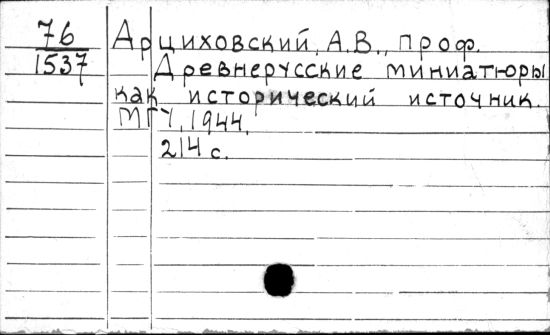 76
1537
Арциховский, А.В., проф.
Древнерусские миниатюры
как исторический источник.
МГУ, 1944.
214 с.